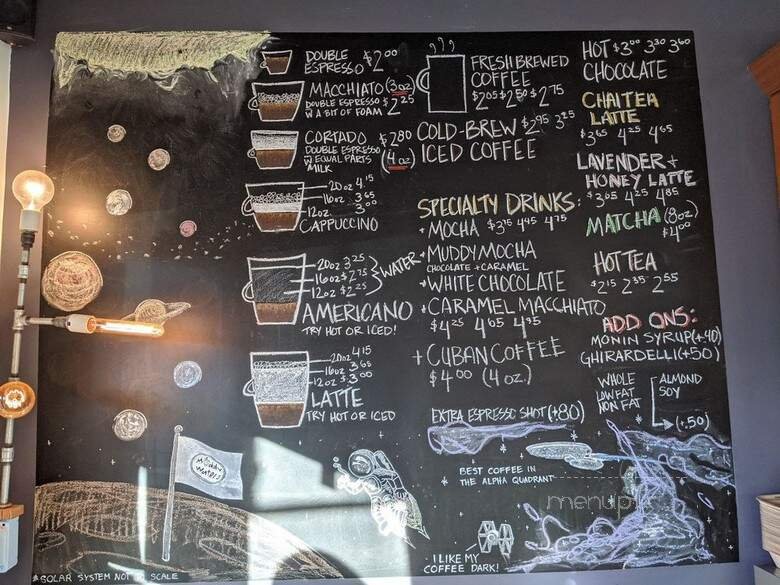 DOUBLE
ESPRESSO $2.00
MACCHIATO (3oz)
DOUBLE ESPRESSO $2.25
W A BIT OF FOAM
CORTADO $2.80
DOUBLE ESPRESSO
W EQUAL PARTS (4oz)
MILK
20oz 4.15
16oz 3.65
12oz 3.00
CAPPUCCINO
20oz 3.25
16oz $2.75
12oz $2.25
WATER
AMERICANO
TRY HOT OR ICED!
20oz 4.15
16oz 3.65
12oz $3.00
LATTE
TRY HOT OR ICED
FRESH BREWED
COFFEE
$2.05 $2.50 $2.75
COLD-BREW $2.95 3.25
ICED COFFEE
SPECIALTY DRINKS:
+ MOCHA $3.75 4.45 4.75
+ MUDDY MOCHA
CHOCOLATE + CARAMEL
+ WHITE CHOCOLATE
+ CARAMEL MACCHIATO
$4.25 4.65 4.95
+ CUBAN COFFEE
$4.00 (4oz.)
EXTRA ESPRESSO SHOT (+.80)
HOT $3.00 3.30 3.60
CHOCOLATE
CHAI TEA
LATTE
$3.65 4.25 4.65
LAVENDER +
HONEY LATTE
$3.65 4.25 4.85
MATCHA (8oz)
$4.00
HOT TEA
$2.15 2.35 2.55
ADD ONS:
MONIN SYRUP (+.40)
GHIRARDELLI (+.50)
WHOLE
LOW FAT
NON FAT
ALMOND
SOY
(+.50)
BEST COFFEE IN
THE ALPHA QUADRANT
menupix
I LIKE MY
COFFEE DARK!
Muddy
Waters
*SOLAR SYSTEM NOT TO SCALE